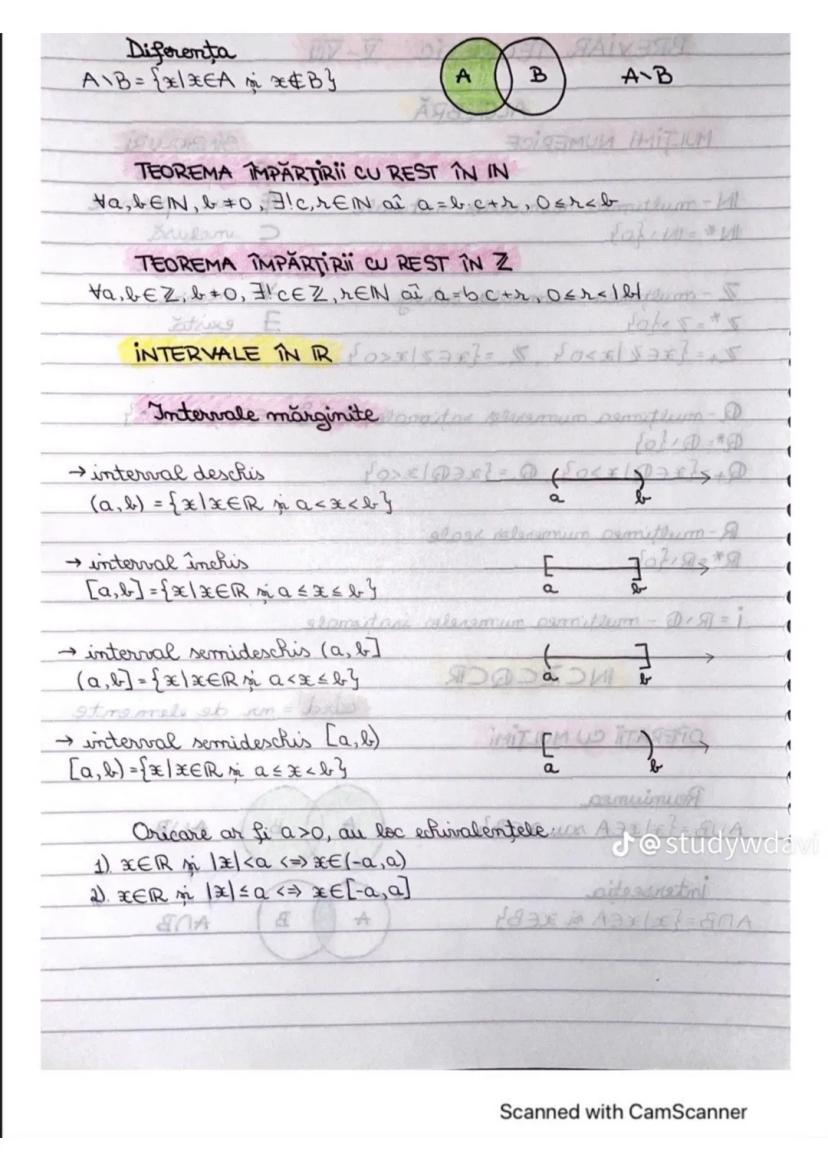 Diferența
A\B={x|x∈A și x∉B}
A B A\B
TEOREMA ÎMPĂRȚIRII CU REST ÎN IN
∀a,b∈IN, b≠0, ∃!c,r∈IN aî a=b·c+r, 0≤r<b
TEOREMA ÎMPĂRȚIRII CU REST ÎN Z
∀a,b∈Z, b≠0, ∃!c∈Z, r∈IN aî a=b·c+r, 0≤r<|b|
INTERVALE ÎN IR
Intervale mărginite
→ interval deschis
(a,b) = {x|x∈IR și a<x<b}
( ) a b
→ interval închis
[a,b]={x|x∈IR și a≤x≤b}
[ ] a b
→ interval semideschis (a,b]
(a,b]={x|x∈IR și a<x≤b}
( ] a b
→ interval semideschis [a,b)
[a,b)={x|x∈IR și a≤x<b}
[ ) a b
Oricare ar fi a>0, au loc echivalențele
1) x∈IR și |x|<a <=> x∈(-a,a)
2) x∈IR și |x|≤a <=> x∈[-a,a]
@studywdavi
Scanned with CamScanner